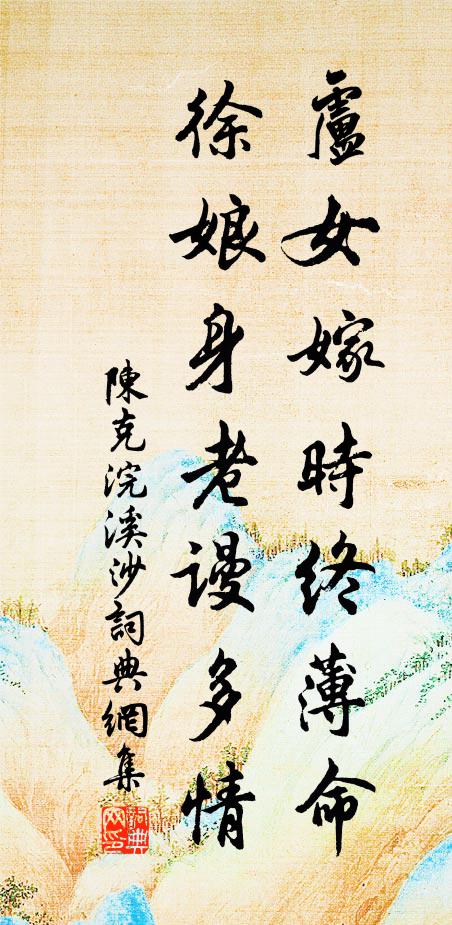 盧女嫁時終薄命
徐娘身老謾多情
陳克浣溪沙詞典網集
詞典網印